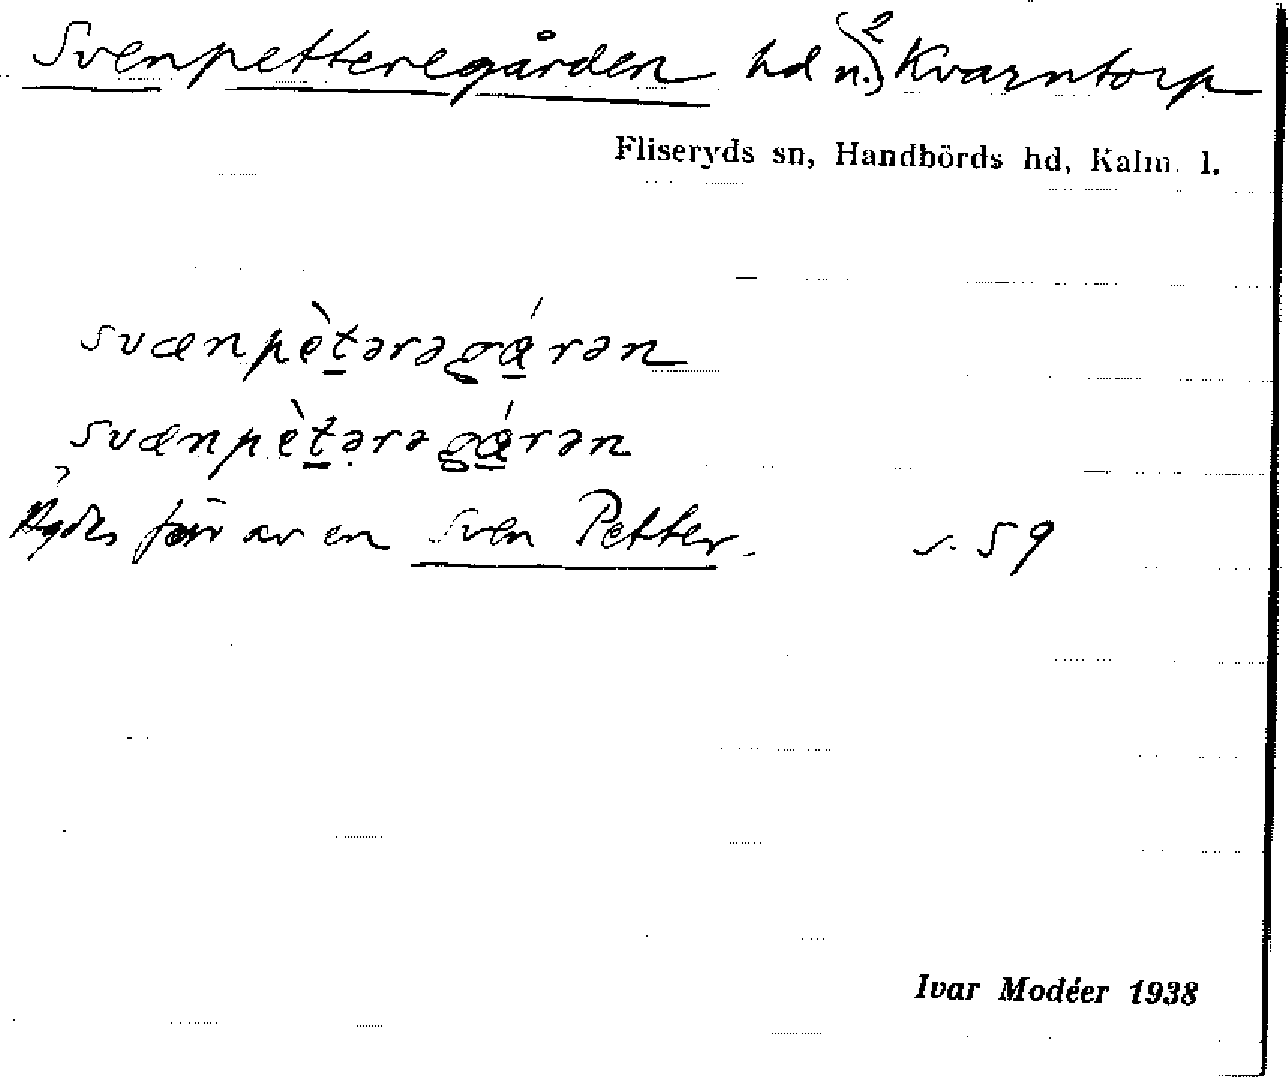 Svenpetteregården hd n. 2 Kvarntorp
Fliseryds sn, Handbörds hd, Kalm. l.
svænpètərəgárən
svænpètərəgárən
Ägdes förr av en Sven Petter. s. 59
Ivar Modéer 1938